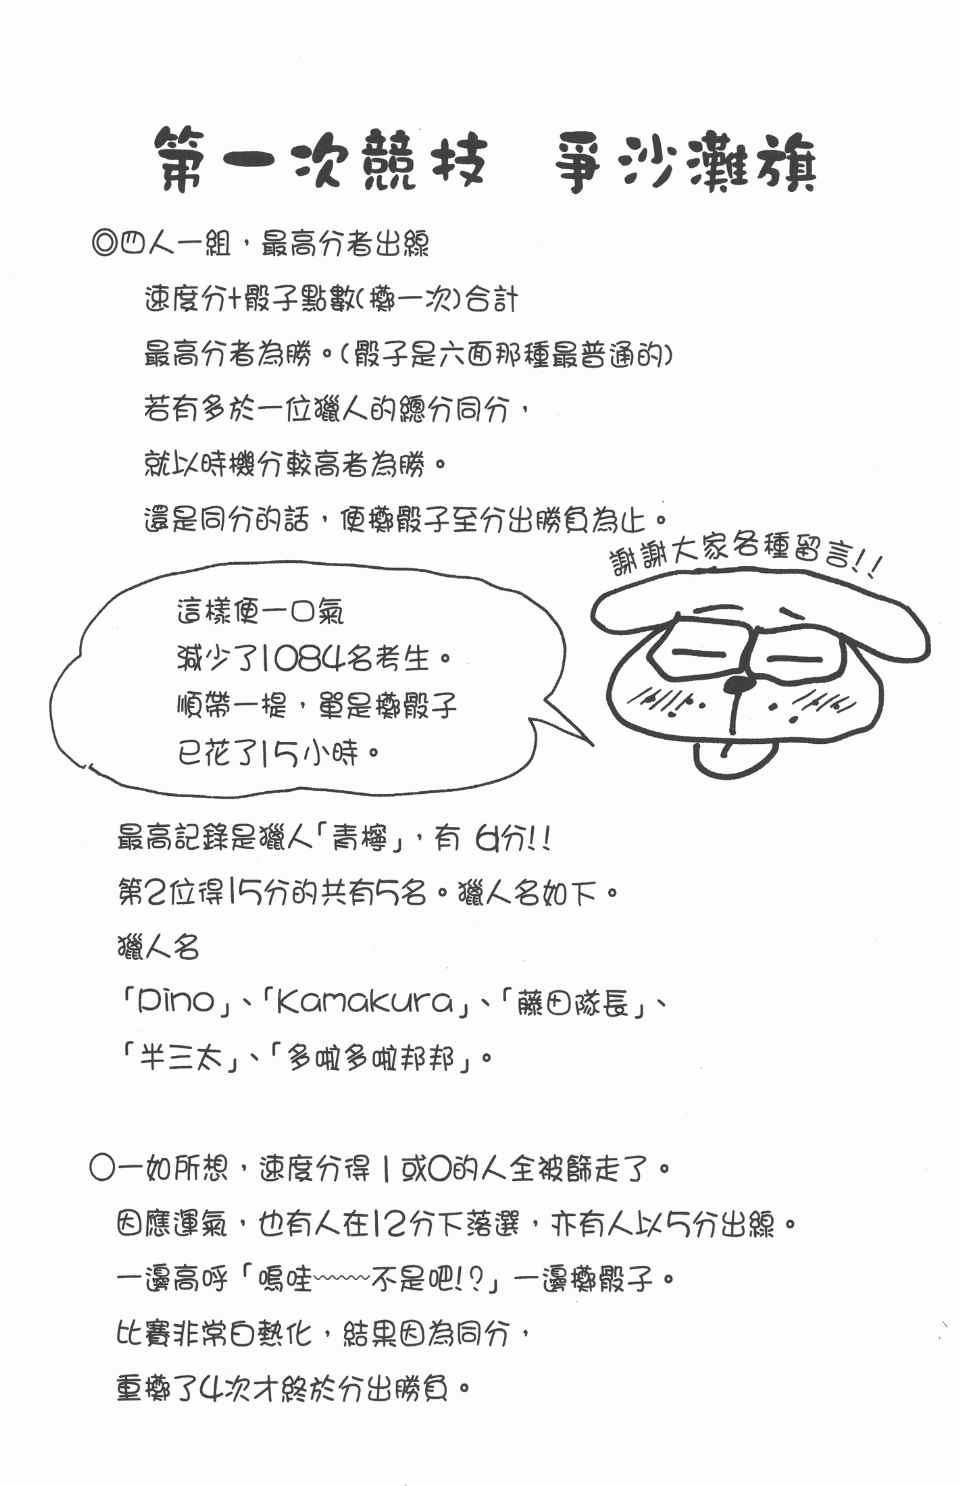 第一次競技 爭沙灘旗
◎四人一組，最高分者出線
速度分+骰子點數(擲一次)合計
最高分者為勝。(骰子是六面那種最普通的)
若有多於一位獵人的總分同分，
就以時機分較高者為勝。
還是同分的話，便擲骰子至分出勝負為止。
謝謝大家各種留言!!
這樣便一口氣
減少了1084名考生。
順帶一提，單是擲骰子
已花了15小時。
最高記錄是獵人「青檸」，有 9分!!
第2位得15分的共有5名。獵人名如下。
獵人名
「Dino」、「Kamakura」、「藤田隊長」、
「半三太」、「多啦多啦邦邦」。
〇一如所想，速度分得1或0的人全被篩走了。
因應運氣，也有人在12分下落選，亦有人以5分出線。
一邊高呼「嗚哇~~~~不是吧!?」一邊擲骰子。
比賽非常白熱化，結果因為同分，
重擲了4次才終於分出勝負。